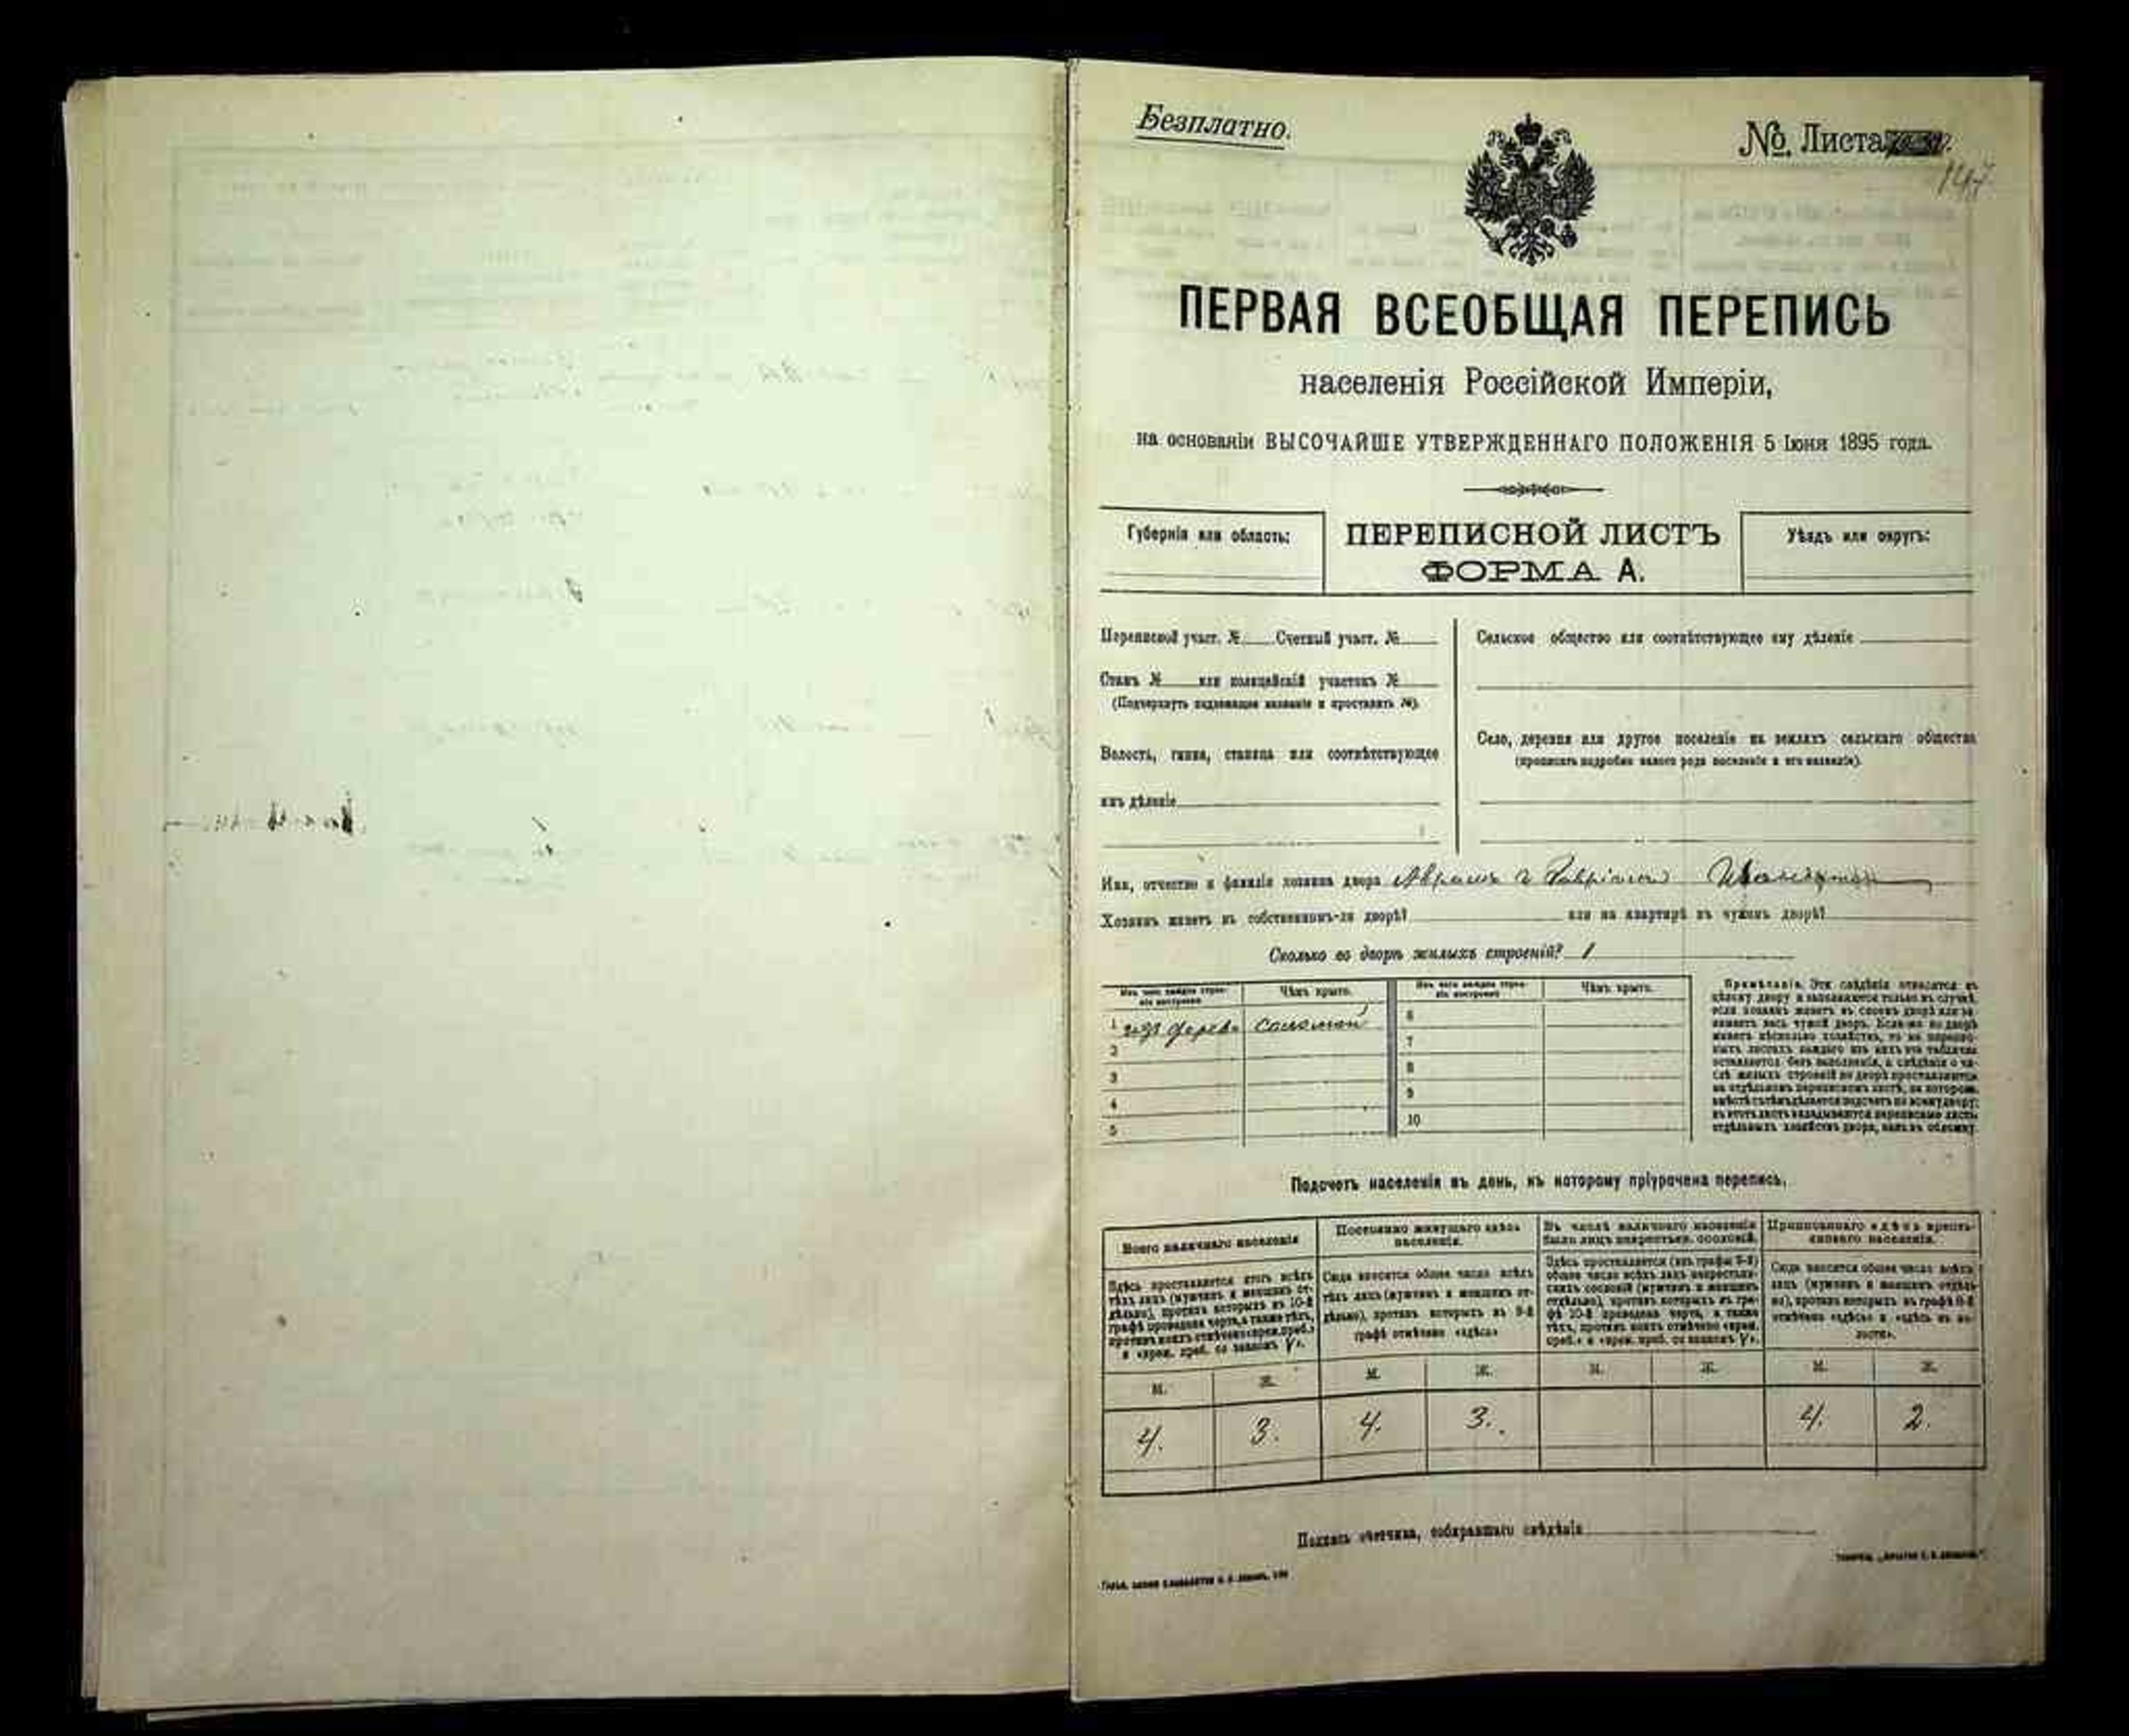 Безплатно.
№ Листа
147
ПЕРВАЯ ВСЕОБЩАЯ ПЕРЕПИСЬ
населенія Россійской Имперіи,
на основаніи ВЫСОЧАЙШЕ УТВЕРЖДЕННАГО ПОЛОЖЕНІЯ 5 Іюня 1895 года.
Губернія или область:
ПЕРЕПИСНОЙ ЛИСТЪ
ФОРМА А.
Уѣздъ или округъ:
Переписной участ. № Счетный участ. №
Станъ № или полицейскій участокъ №
(Подчеркнуть надлежащее названіе и проставить №).
Волость, гмина, станица или соотвѣтствующее
имъ дѣленіе
Сельское общество или соотвѣтствующее ему дѣленіе
Село, деревня или другое поселеніе на земляхъ сельскаго общества
(прописать подробно какого рода поселеніе и его названіе).
Имя, отчество и фамилія хозяина двора
Хозяинъ живетъ въ собственномъ-ли дворѣ? или на квартирѣ въ чужомъ дворѣ?
Сколько во дворѣ жилыхъ строеній? 1
Изъ чего каждое строе-
ніе построено
Чѣмъ крыто.
Изъ чего каждое строе-
ніе построено
Чѣмъ крыто.
1 изъ дерева соломой
2
3
4
5
6
7
8
9
10
Примѣчаніе. Эти свѣдѣнія относятся къ
цѣлому двору и заполняются только въ случаѣ,
если хозяинъ живетъ въ своемъ дворѣ или за-
нимаетъ весь чужой дворъ. Если-же во дворѣ
живетъ нѣсколько хозяйствъ, то на перепис-
ныхъ листахъ каждаго изъ нихъ эта табличка
оставляется безъ заполненія, а свѣдѣнія о чи-
слѣ жилыхъ строеній во дворѣ проставляются
на отдѣльномъ переписномъ листѣ, на которомъ
вмѣстѣ съ тѣмъ дѣлается подсчетъ по всему двору;
въ этотъ листъ вкладываются переписные листы
отдѣльныхъ хозяйствъ двора, какъ въ обложку.
Подсчетъ населенія въ день, къ которому пріурочена перепись.
Всего наличнаго населенія
Здѣсь проставляется итогъ всѣхъ
тѣхъ лицъ (мужчинъ и женщинъ от-
дѣльно), противъ которыхъ въ 10-й
графѣ проведена черта, а также тѣхъ,
противъ коихъ отмѣчено «врем. преб.»
и «врем. преб. со знакомъ V».
Постоянно живущаго здѣсь
населенія.
Сюда вносится общее число всѣхъ
тѣхъ лицъ (мужчинъ и женщинъ от-
дѣльно), противъ которыхъ въ 9-й
графѣ отмѣчено «здѣсь»
Въ числѣ наличнаго населенія
было лицъ некрестьян. сословій.
Здѣсь проставляется (изъ графы 3-й)
общее число всѣхъ лицъ некрестьян-
скихъ сословій (мужчинъ и женщинъ
отдѣльно), противъ которыхъ въ гра-
фѣ 10-й проведена черта, а также
тѣхъ, противъ коихъ отмѣчено «врем.
преб.» и «врем. преб. со знакомъ V».
Приписаннаго здѣсь кресть-
янскаго населенія.
Сюда вносится общее число всѣхъ
лицъ (мужчинъ и женщинъ отдѣль-
но), противъ которыхъ въ графѣ 8-й
отмѣчено «здѣсь» и «здѣсь въ во-
лости».
М. Ж. М. Ж. М. Ж. М. Ж.
4. 3. 4. 3. 4. 2.
Подпись счетчика, собиравшаго свѣдѣнія